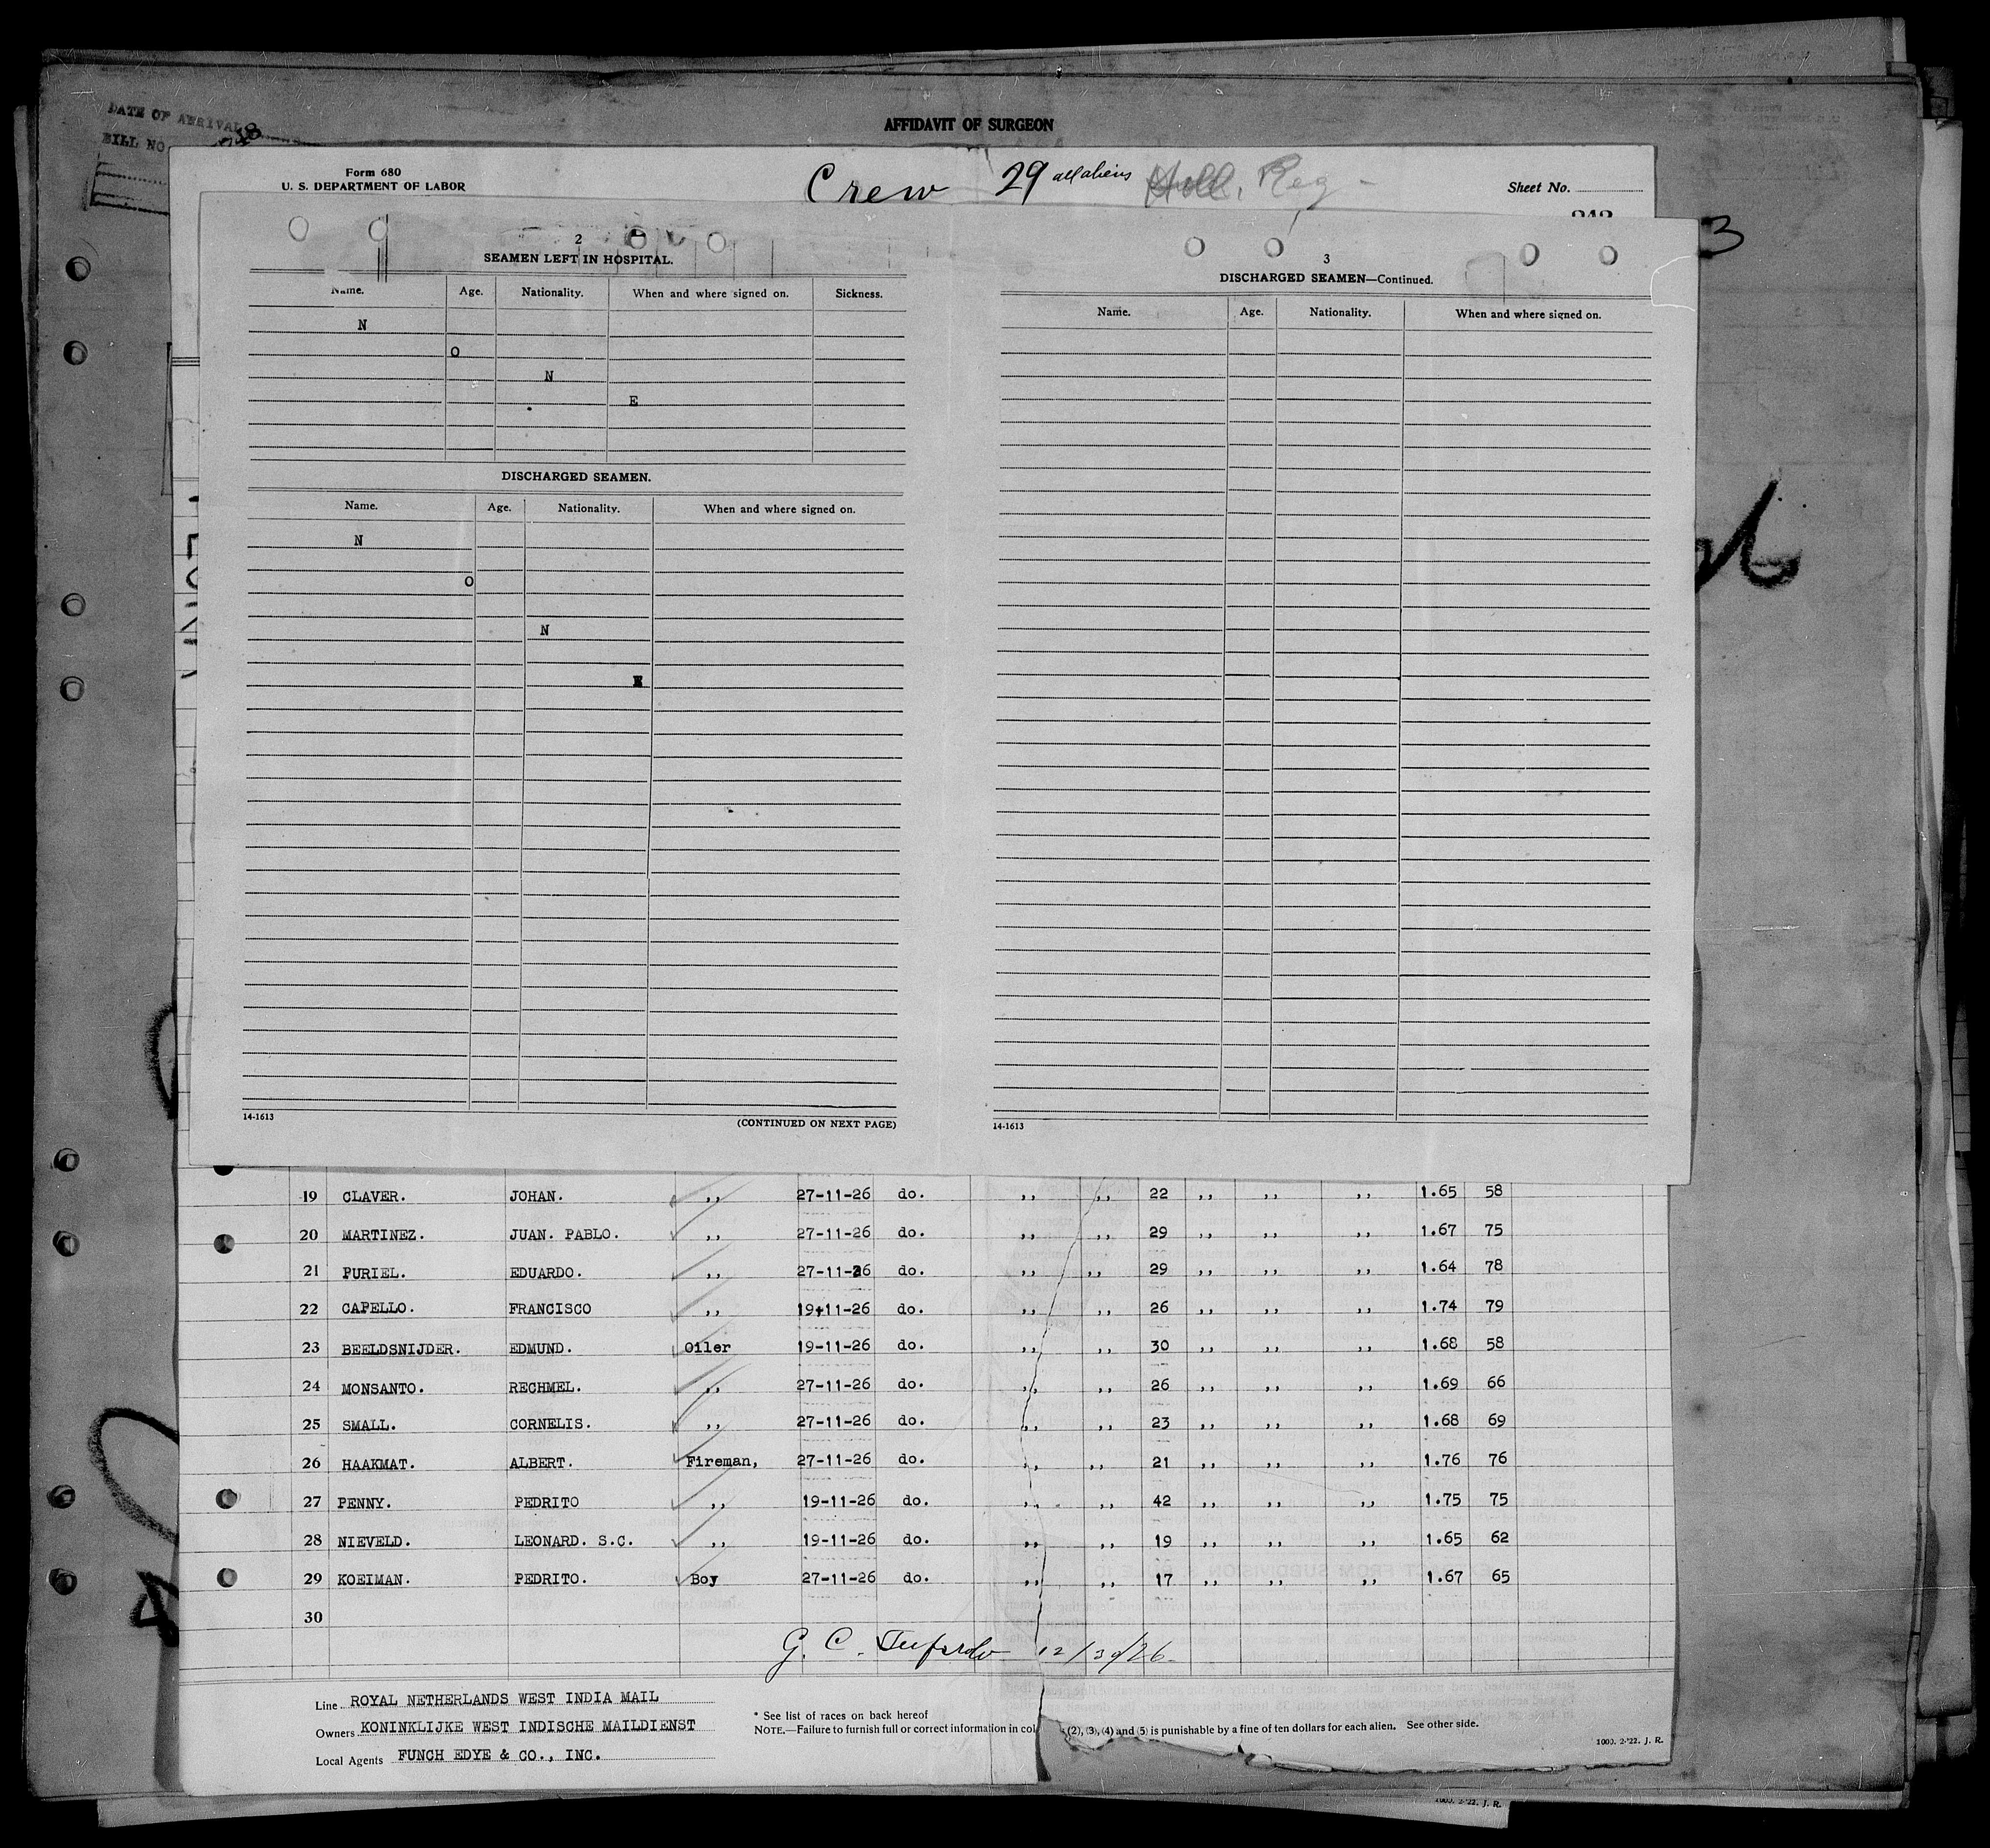 DATE OF ARRIVAL
BILL NO.
AFFIDAVIT OF SURGEON
Form 680
U. S. DEPARTMENT OF LABOR
Crew 29 all aliens Holl. Reg -
Sheet No.
3
2
SEAMEN LEFT IN HOSPITAL.
Name. Age. Nationality. When and where signed on. Sickness.
N
O
N
E
DISCHARGED SEAMEN.
Name. Age. Nationality. When and where signed on.
N
O
N
E
14-1613
(CONTINUED ON NEXT PAGE)
3
DISCHARGED SEAMEN—Continued.
Name. Age. Nationality. When and where signed on.
14-1613
19 CLAVER. JOHAN. ,, 27-11-26 do. ,, ,, 22 ,, ,, ,, 1.65 58
20 MARTINEZ. JUAN. PABLO. ,, 27-11-26 do. ,, ,, 29 ,, ,, ,, 1.67 75
21 PURIEL. EDUARDO. ,, 27-11-26 do. ,, ,, 29 ,, ,, ,, 1.64 78
22 CAPELLO. FRANCISCO ,, 19-11-26 do. ,, ,, 26 ,, ,, ,, 1.74 79
23 BEELDSNIJDER. EDMUND. Oiler 19-11-26 do. ,, ,, 30 ,, ,, ,, 1.68 58
24 MONSANTO. RECHMEL. ,, 27-11-26 do. ,, ,, 26 ,, ,, ,, 1.69 66
25 SMALL. CORNELIS. ,, 27-11-26 do. ,, ,, 23 ,, ,, ,, 1.68 69
26 HAAKMAT. ALBERT. Fireman, 27-11-26 do. ,, ,, 21 ,, ,, ,, 1.76 76
27 PENNY. PEDRITO ,, 19-11-26 do. ,, ,, 42 ,, ,, ,, 1.75 75
28 NIEVELD. LEONARD. S.C. ,, 19-11-26 do. ,, ,, 19 ,, ,, ,, 1.65 62
29 KOEIMAN. PEDRITO. Boy 27-11-26 do. ,, ,, 17 ,, ,, ,, 1.67 65
30
G. C. 12/30/26
Line ROYAL NETHERLANDS WEST INDIA MAIL
Owners KONINKLIJKE WEST INDISCHE MAILDIENST
Local Agents FUNCH EDYE & CO., INC.
* See list of races on back hereof
NOTE.—Failure to furnish full or correct information in col (2), (3), (4) and (5) is punishable by a fine of ten dollars for each alien. See other side.
1000. 2-'22. J. R.
1000. 2-'22. J. R.